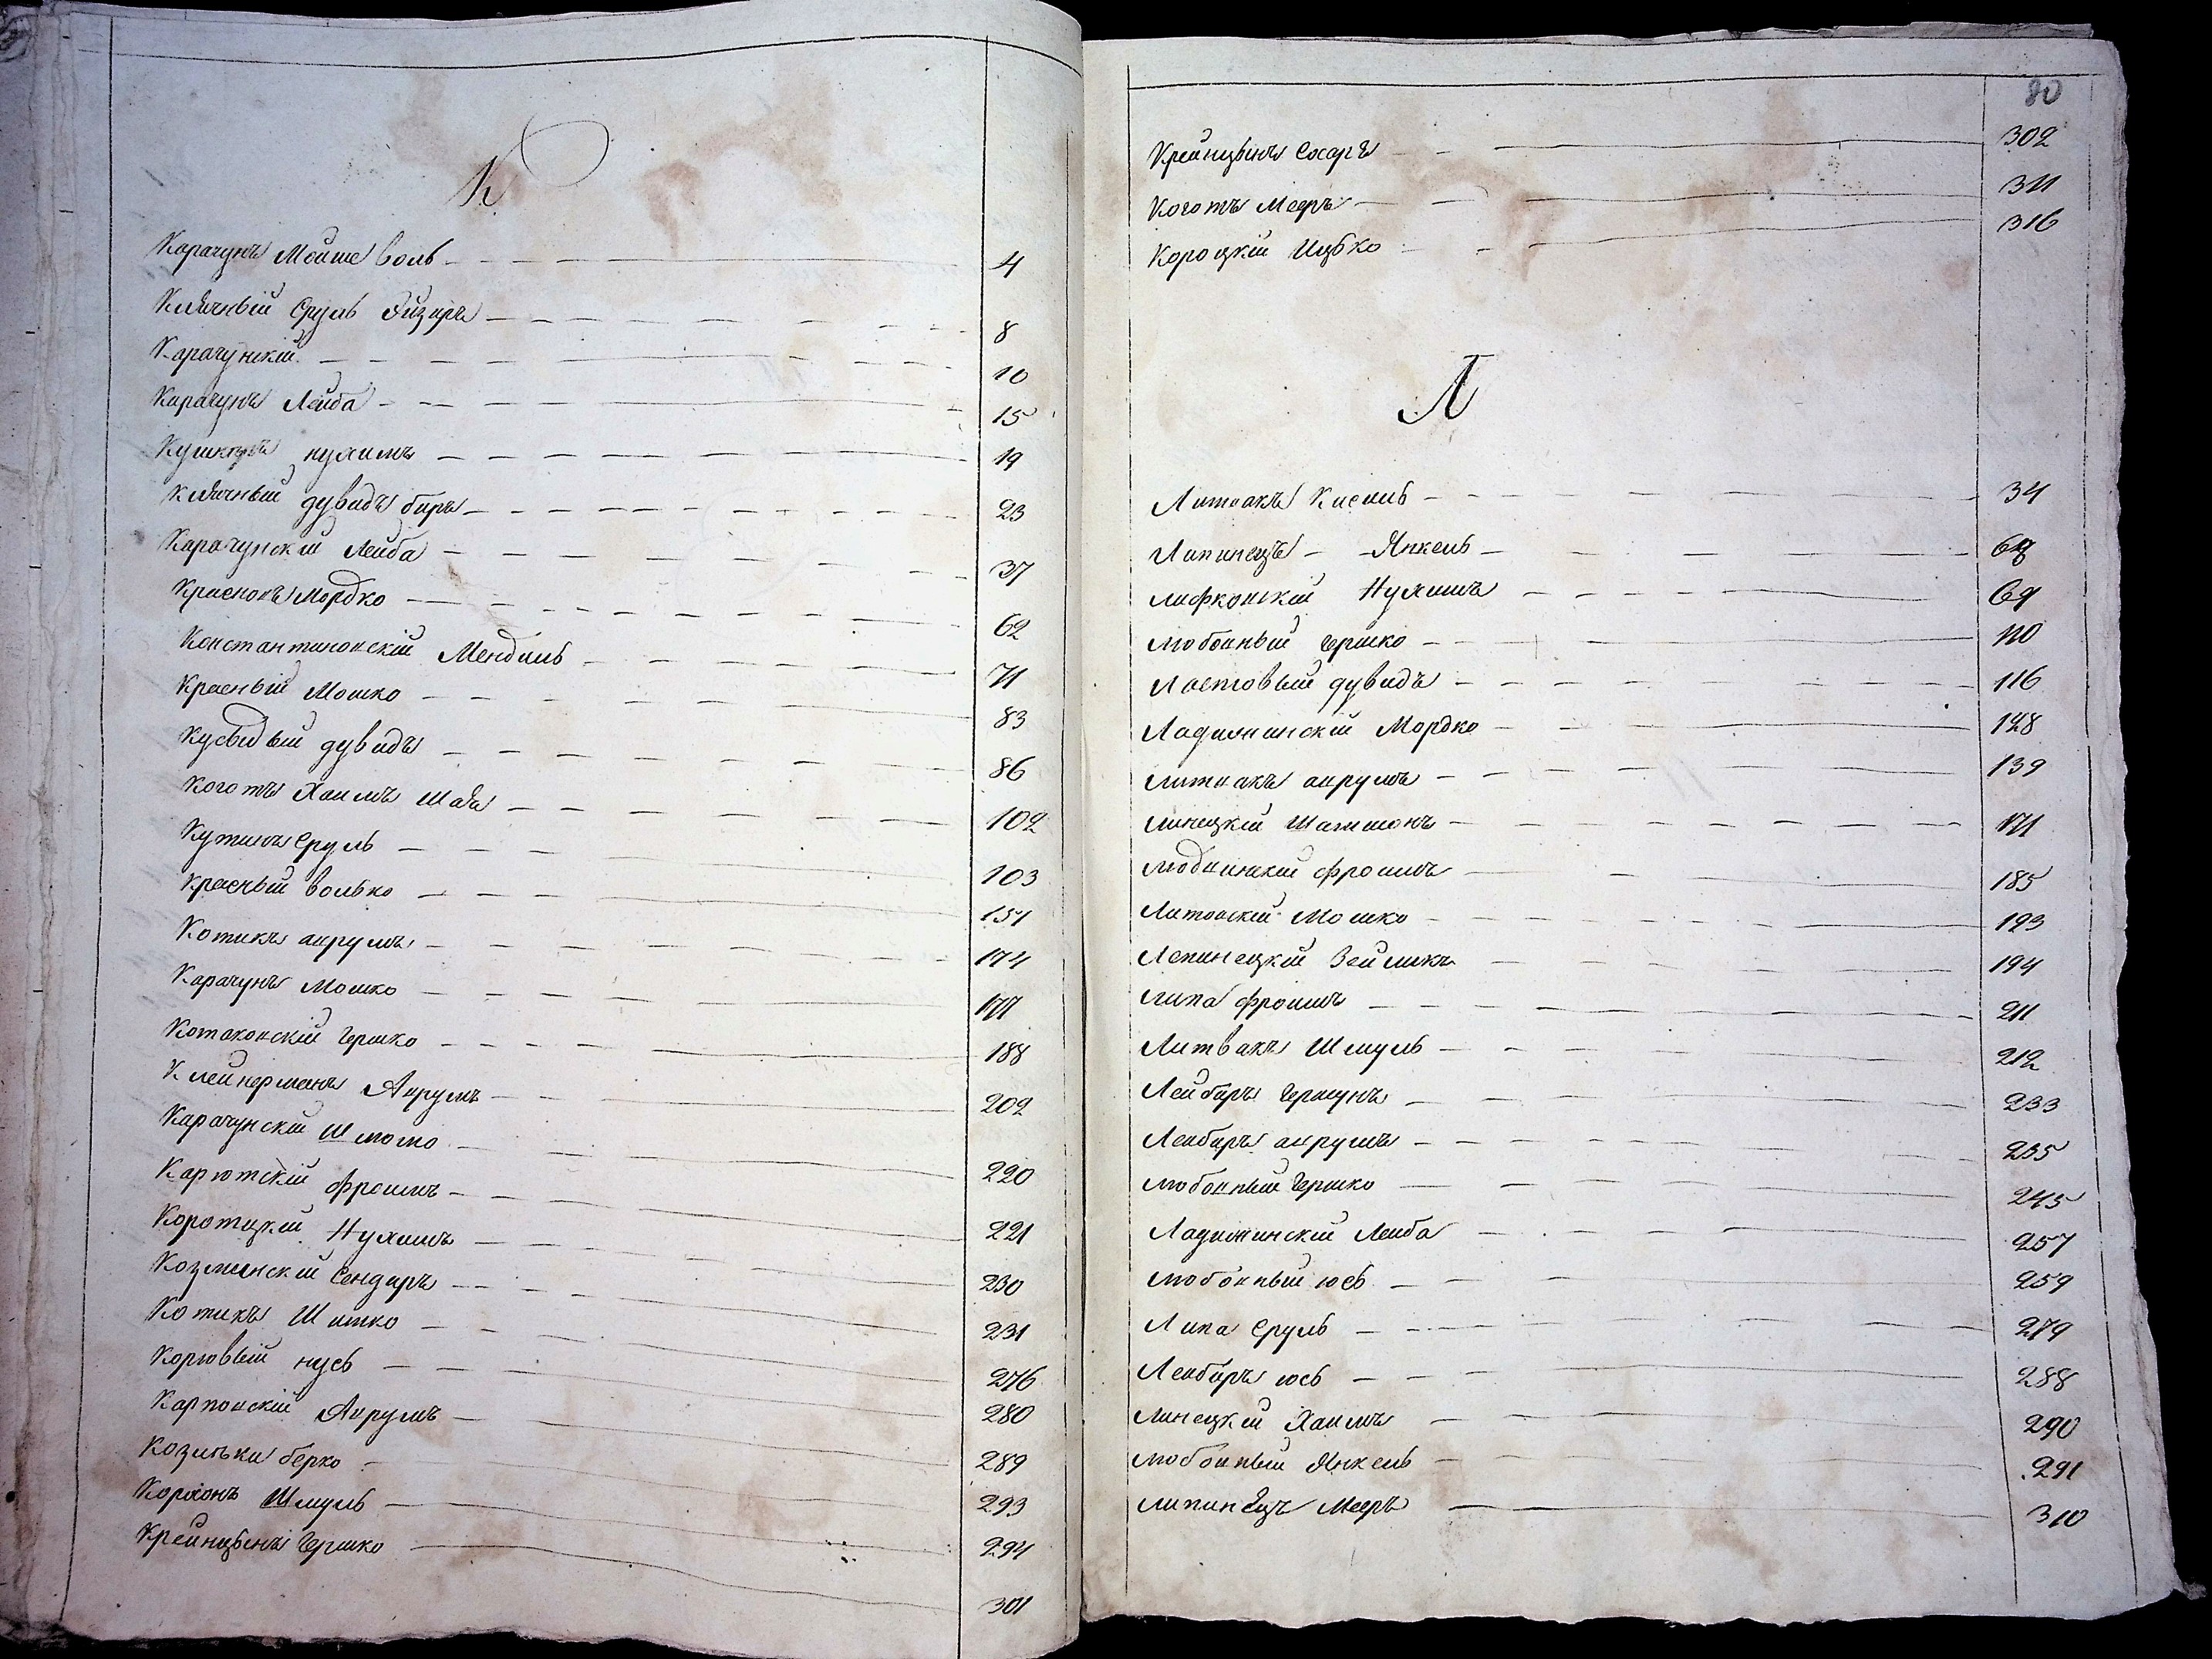 К
Карачунъ Мойше Воль 4
Клѣчный Сруль Айзиръ 8
Карачунскій 10
Карачунъ Лейба 15
нухимъ 19
Клѣчный дувидъ биръ 23
Карачунскій Лейба 37
Красновъ Мордко 62
Константиновскій Мендиль 71
Красный Мошко 83
дувидъ 86
Коготъ Хаимъ Шаѣ 102
Кутинъ Сруль 103
Красный Волько 151
Котикъ аврумъ 174
Карачунъ Мошко 177
Котаковскій Гершко 188
Клейнерманъ Аврумъ 202
Карачунскій Шлома 220
Карютскій Фроимъ 221
Коротицкій Нухимъ 230
Козминскій Сендиръ 231
Котикъ Шимко 276
Корговый нусь 280
Карповскій Аврумъ 289
Козинька берко 293
Корхонъ Шмуль 294
Крейнцвинъ Гершко 301
80
Крейнцвинъ Сахаръ 302
Коготъ Мееръ 311
Короцкій Ицко 316
Л
Литвакъ Кисиль 34
Липинецъ Янкель
Лифковскій Нухимъ 69
Любовный Гершко 110
Лостовый дувидъ 116
Ладижинскій Мордко 128
Литвакъ аврумъ 139
Линецкій Шамшонъ 171
Людвинскій Фроимъ 185
Литовскій Мошко 193
Лепинецкій Зейликъ 194
Липа Фроимъ 211
Литвакъ Шмуль 212
Лейбиръ Гершунъ 233
Лейбиръ аврумъ 235
Любовный Гершко 245
Ладижинскій Лейба 257
Любовный юсь 259
Липа Сруль 279
Лейбиръ юсь 288
Линецкій Хаимъ 290
Любовный Янкель 291
Липинецъ Мееръ 310